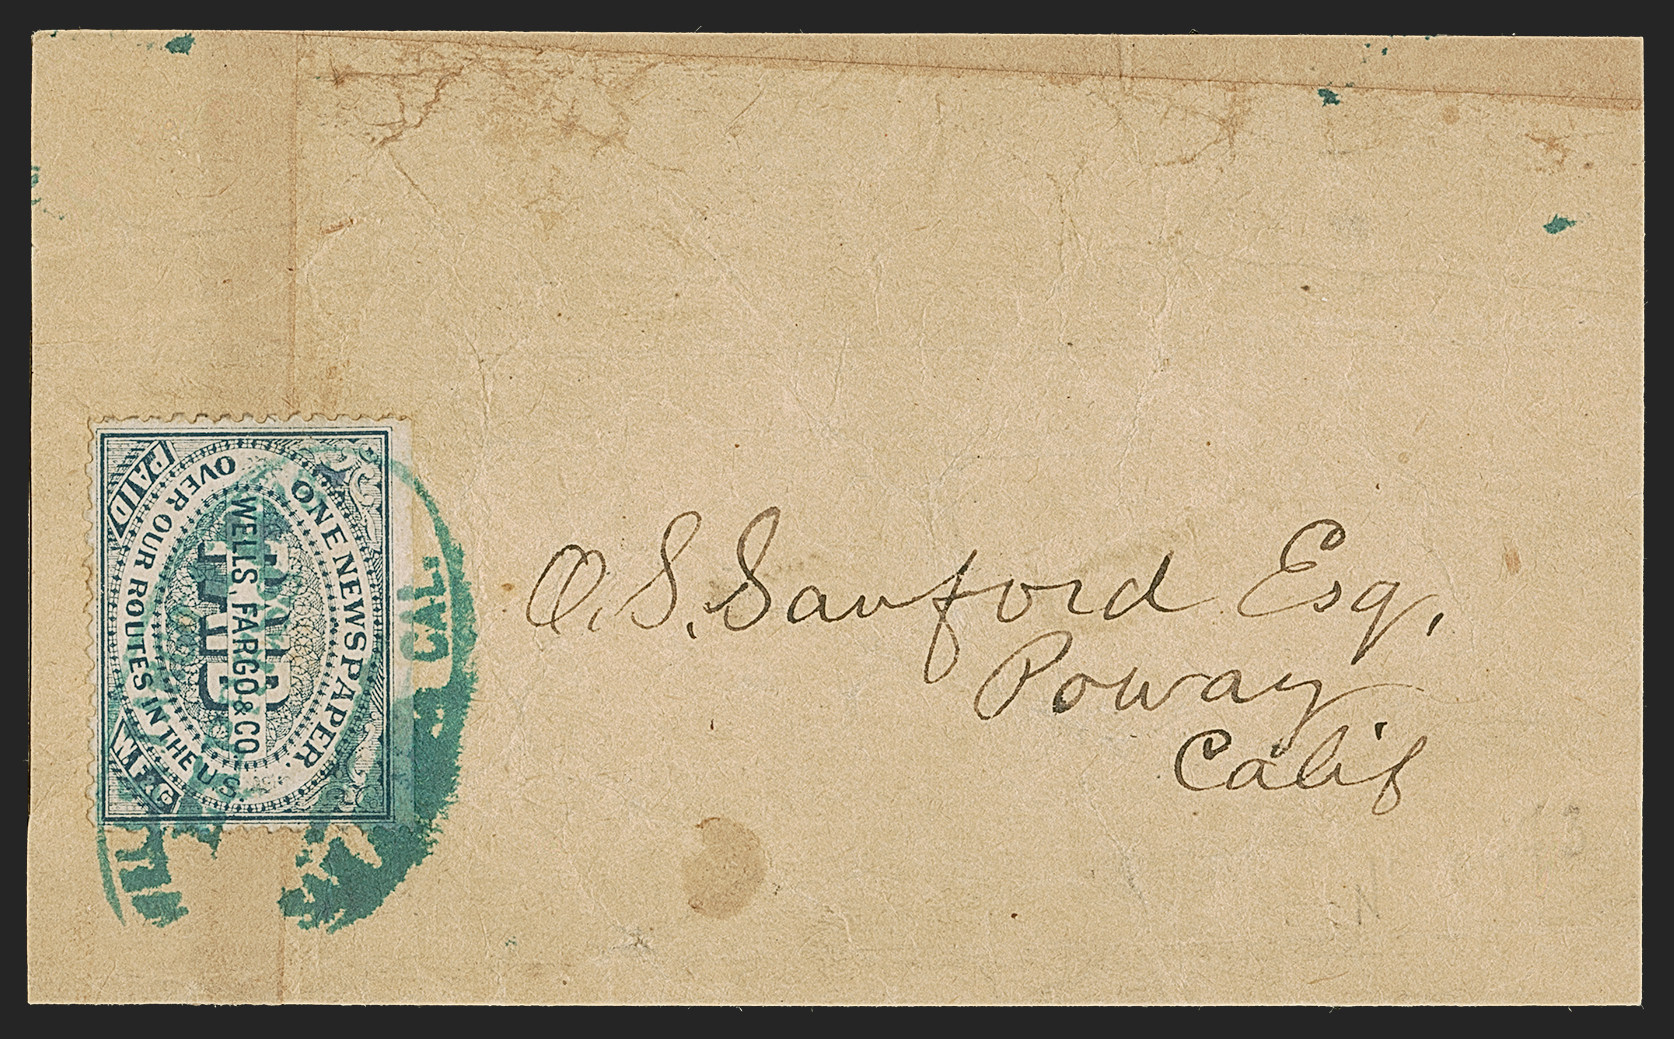 PAID
ONE NEWSPAPER.
OVER OUR ROUTES IN THE U.S.
WELLS, FARGO & CO.
W.F.&Co
CAL.
O. S. Sanford Esq.
Poway
Calif